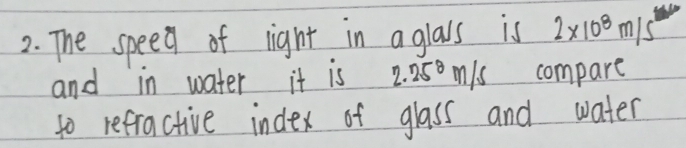 2. The speed of light in a glass is 2x10⁸ m/s
and in water it is 2.25⁸ m/s compare
to refractive index of glass and water